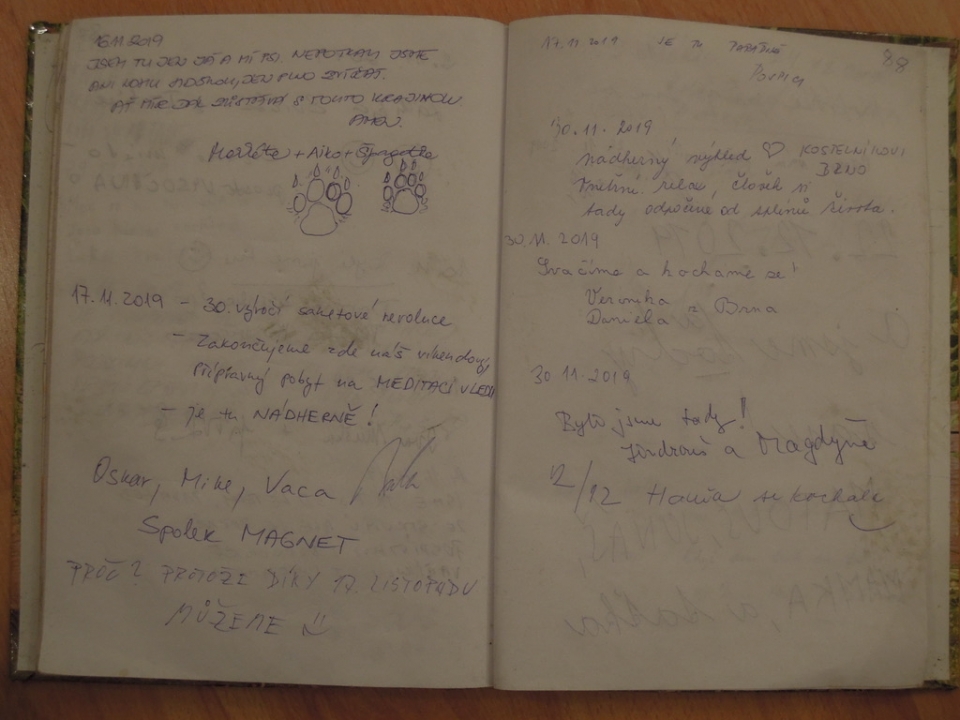 16.11.2019
JSEM TU JEN JÁ A MÍ PSI. NEPOTKALI JSME
ANI KOHU JEN
AŤ S TOUTO KRAJINOU
AMEN.
Markéta + Aiko +
17.11.2019 - 30. výročí sametové revoluce
- Zakončujeme zde náš víkendový
přípravný pobyt na MEDITACI V LEDU
- je tu NÁDHERNĚ!
Oskar, Mike, Vaca
Spolek MAGNET
PROČ? PROTOŽE DÍKY 17. LISTOPADU
MŮŽEME
17.11 2019 JE TU
88
30.11.2019
nádherný výhled ♡ KOSTELNÍKOVI
BRNO
Vnitřní relax, člověk si
tady odpočine od splínů života.
30.11.2019
Svačíme a kocháme se!
Veronika
Daniela z Brna
30.11.2019
Byli jsme tady!
Jindrouš a Magdyně
12/12 Hanča se kochala